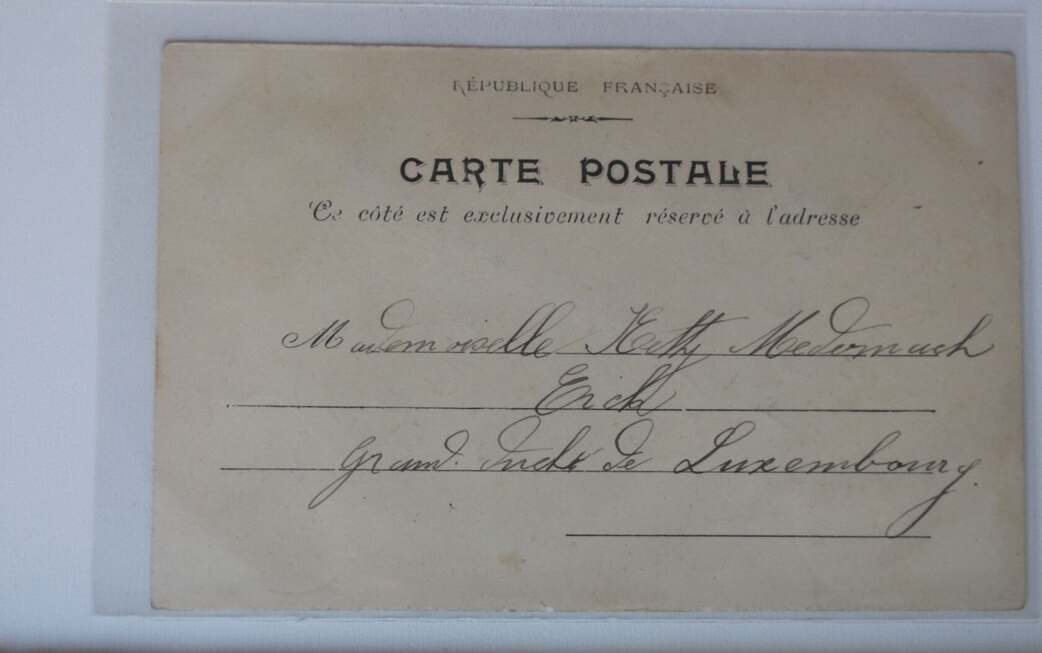 RÉPUBLIQUE FRANÇAISE
CARTE POSTALE
Ce côté est exclusivement réservé à l'adresse
Mademoiselle Ketty Medernach
Erick
Grand. Duché de Luxembourg.